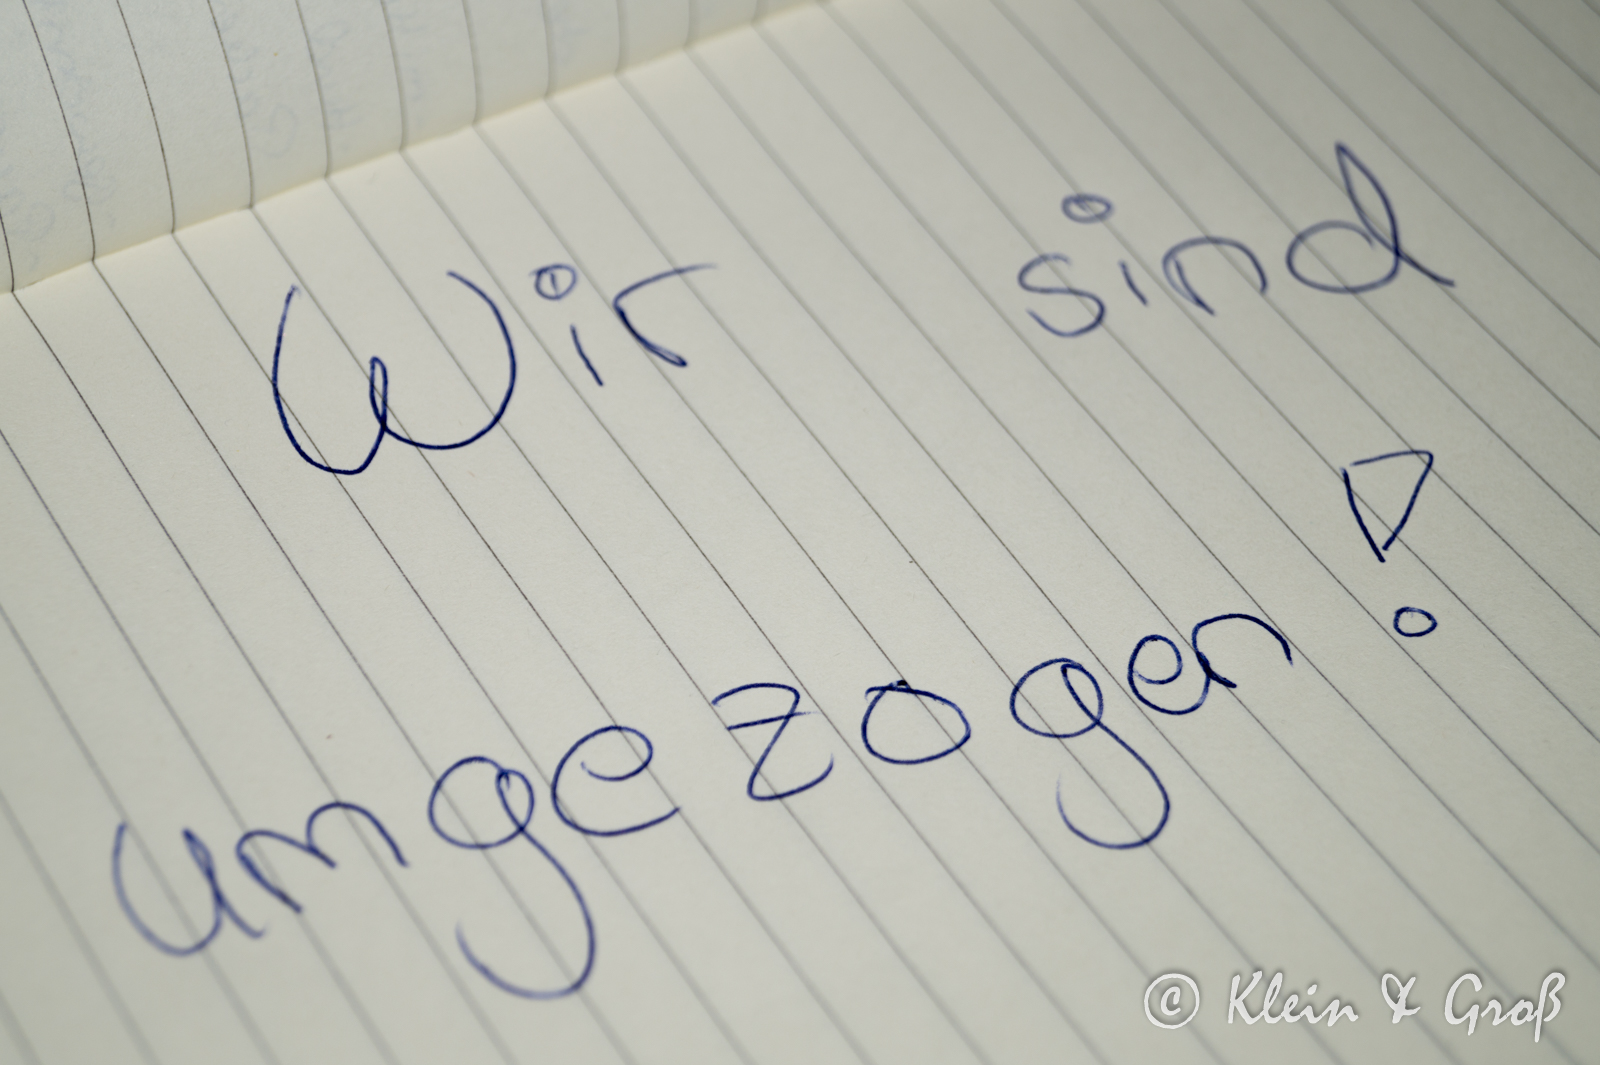 Wir sind
ungezogen!
© Klein & Groß